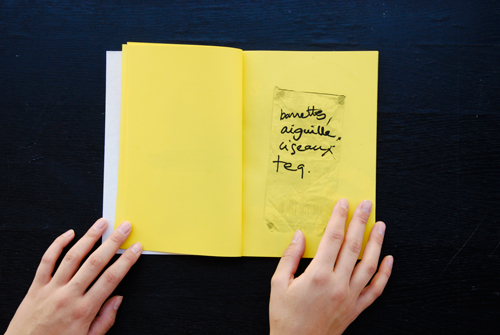 barrettes,
aiguille,
ciseaux
teq.